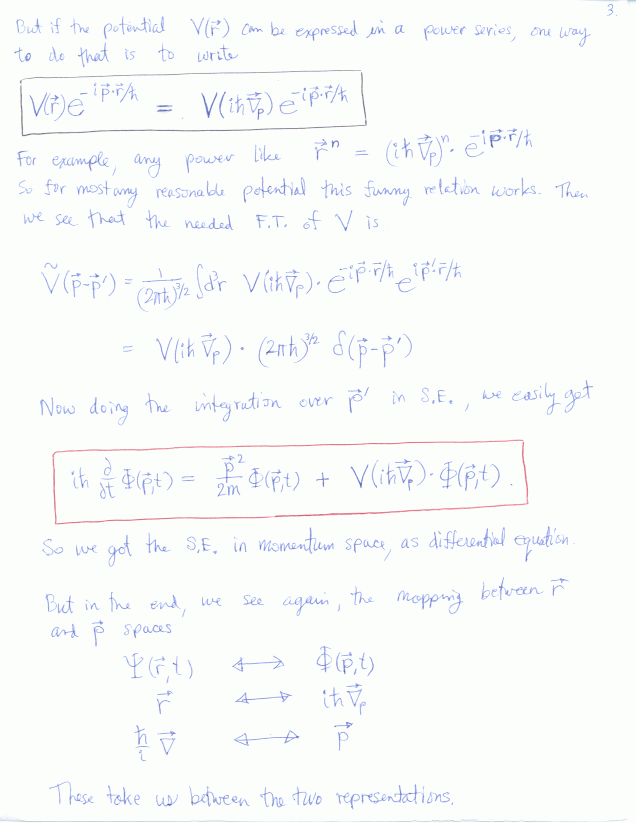 3.
But if the potential V(r⃗) can be expressed in a power series, one way
to do that is to write
V(r⃗)e^{-ip⃗·r⃗/ħ} = V(iħ∇⃗ₚ) e^{-ip⃗·r⃗/ħ}
For example, any power like r⃗ⁿ = (iħ∇⃗ₚ)ⁿ· e^{-ip⃗·r⃗/ħ}
So for most any reasonable potential this funny relation works. Then
we see that the needed F.T. of V is
Ṽ(p⃗-p⃗') = 1/(2πħ)^{3/2} ∫d³r V(iħ∇⃗ₚ)· e^{-ip⃗·r⃗/ħ} e^{ip⃗'·r⃗/ħ}
= V(iħ∇⃗ₚ)· (2πħ)^{3/2} δ(p⃗-p⃗')
Now doing the integration over p⃗' in S.E., we easily get
iħ ∂/∂t Φ(p⃗,t) = p⃗²/2m Φ(p⃗,t) + V(iħ∇⃗ₚ)· Φ(p⃗,t).
So we got the S.E. in momentum space, as differential equation.
But in the end, we see again, the mapping between r⃗
and p⃗ spaces
Ψ(r⃗,t) ⟷ Φ(p⃗,t)
r⃗ ⟷ iħ∇⃗ₚ
ħ/i ∇⃗ ⟷ p⃗
These take us between the two representations.